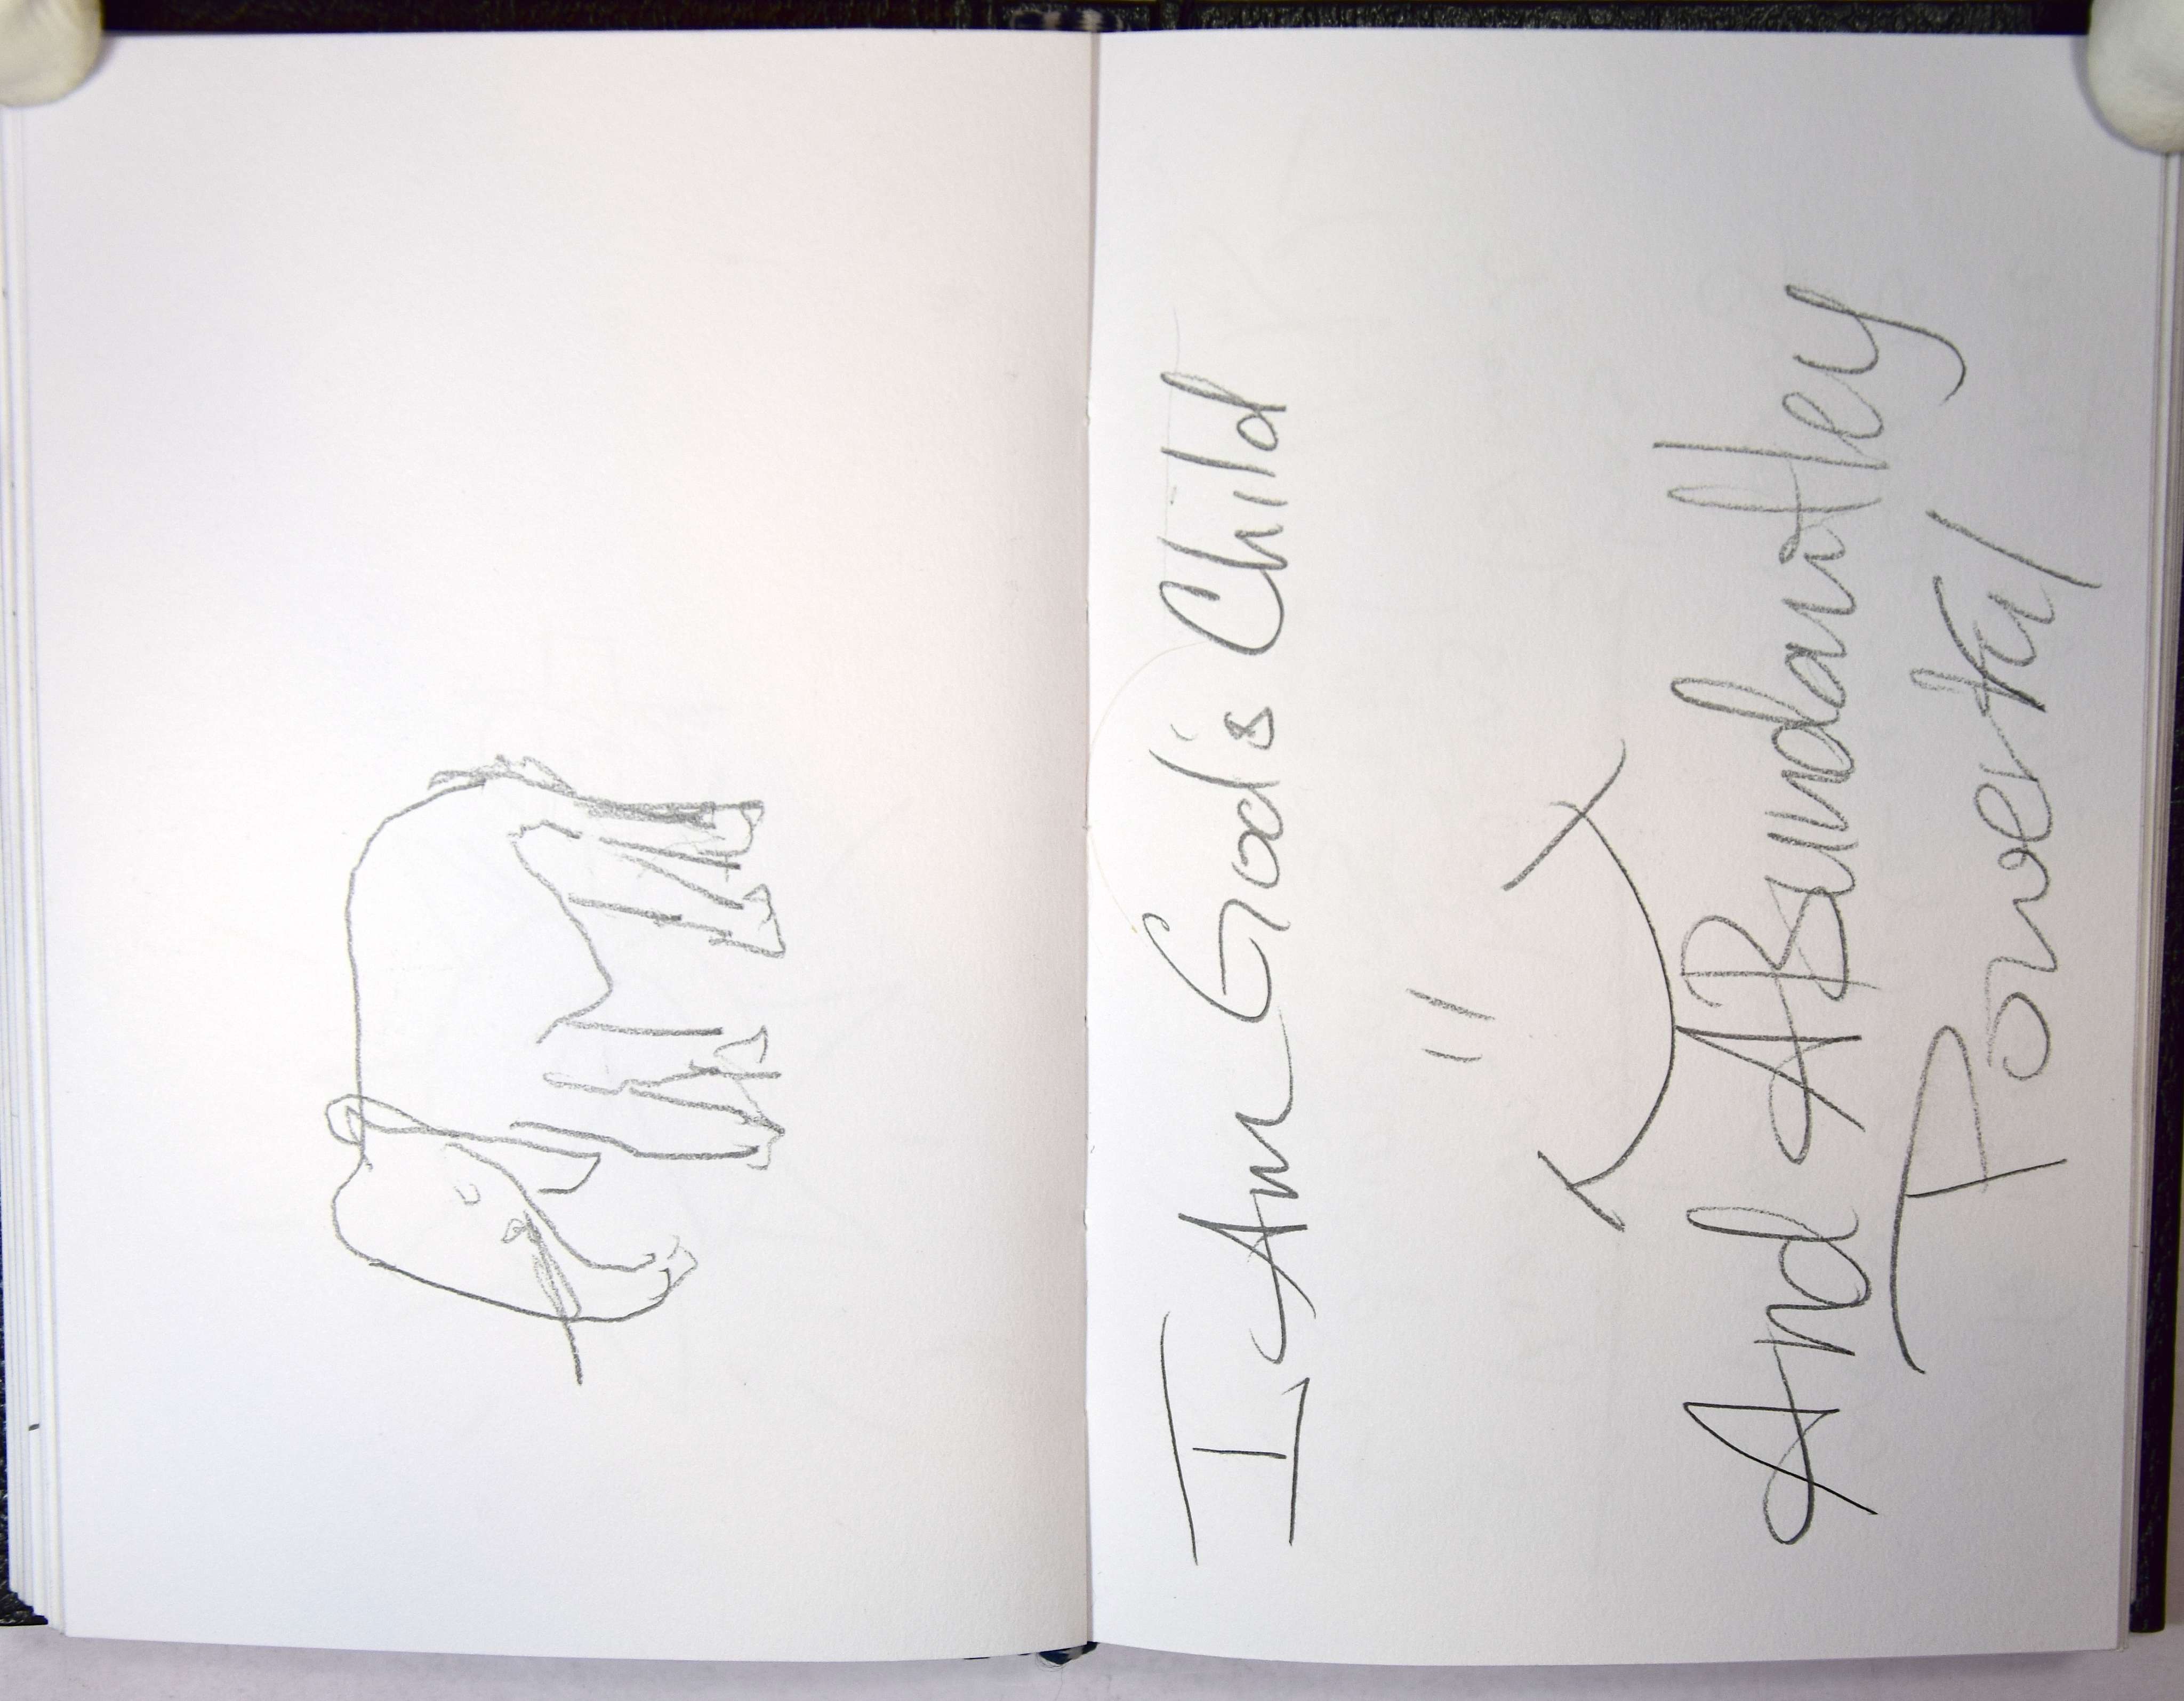 I Am God's Child
And ABundantley
Powerful